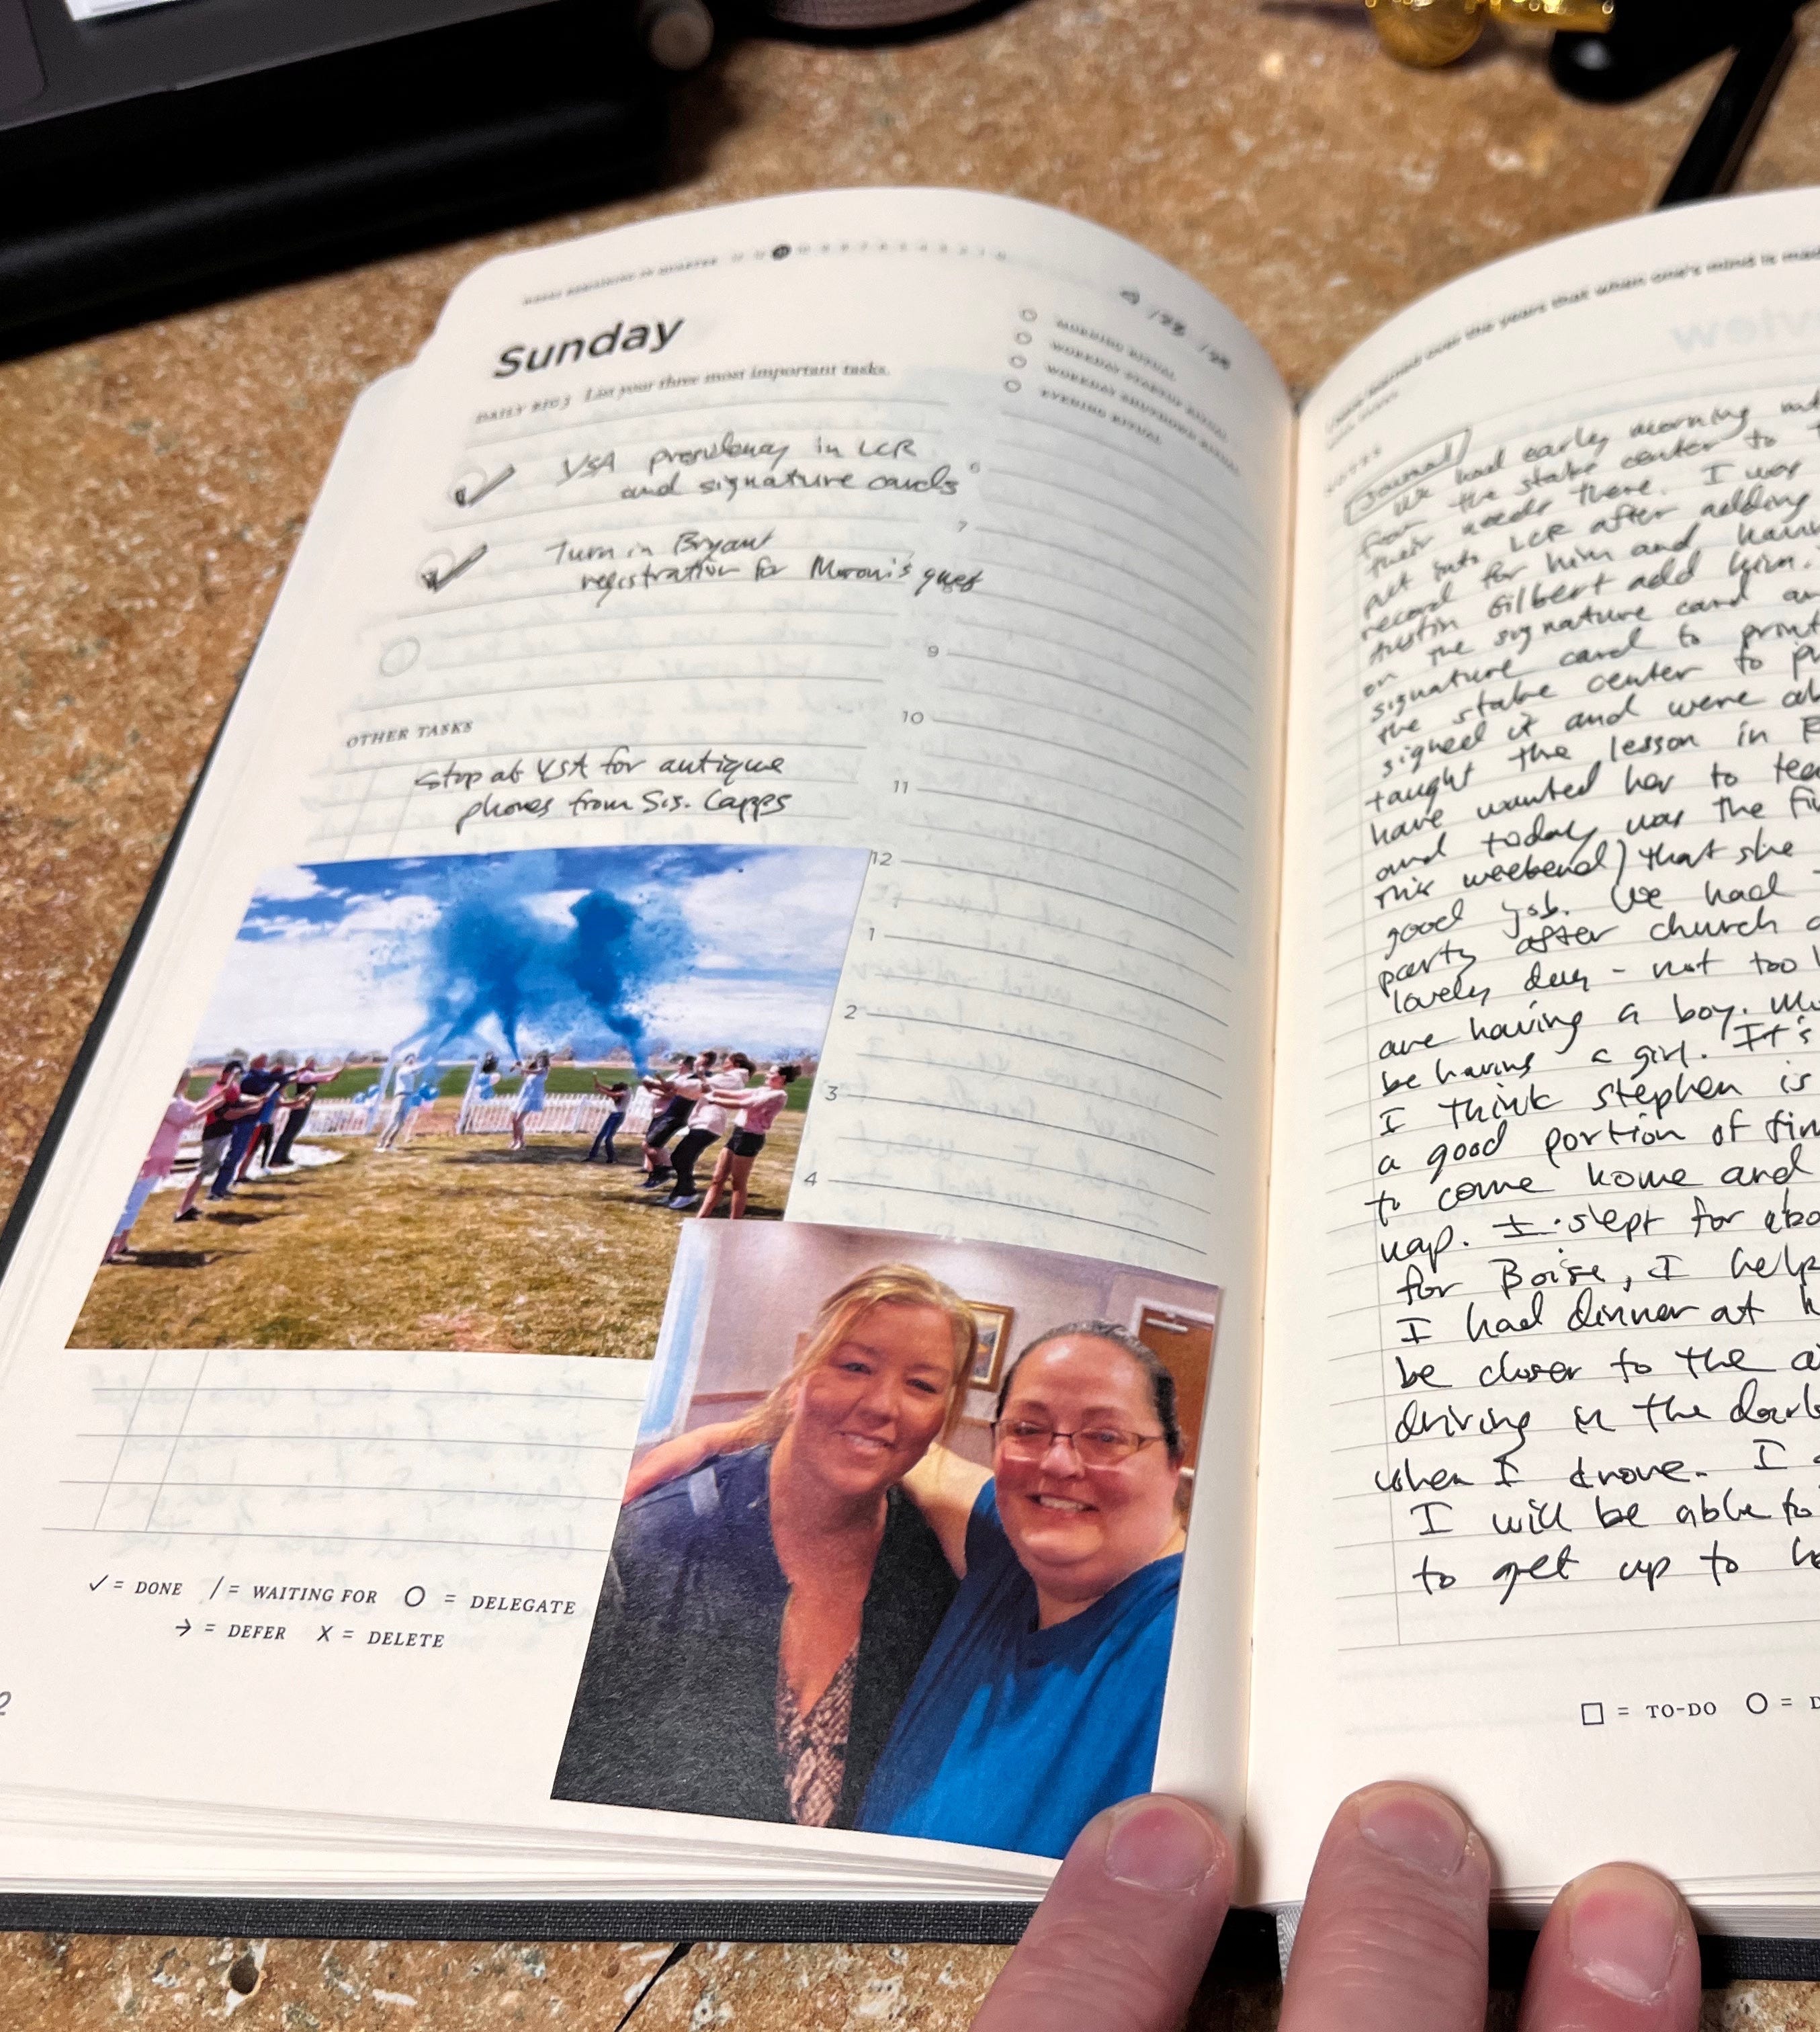 Sunday
DAILY BIG 3 List your three most important tasks.
MORNING RITUAL
WORKDAY STARTUP RITUAL
WORKDAY SHUTDOWN RITUAL
EVENING RITUAL
YSA presidency in LCR
and signature cards
Turn in Bryant
registration for Moroni's quest
OTHER TASKS
Stop at YSA for antique
phones from Sis. Capps
6
7
9
10
11
12
1
2
3
4
✓ = DONE / = WAITING FOR O = DELEGATE
→ = DEFER X = DELETE
2
learned over the years that when one's mind is
NOTES
Journal
We had early morning
for the stake center to
their needs there. I was
put into LCR after adding
record for him and
Austin Gilbert add him.
on the signature card
signature card to print
the stake center to
signed it and were
taught the lesson in
have wanted her to
and today was the
this weekend) that she
good job. We had
party after church
lovely day - not too
are having a boy.
be having a girl. It's
I think Stephen is
a good portion of
to come home and
nap. I slept for
for Boise, I
I had dinner at
be closer to the
driving in the
when I drove. I
I will be able to
to get up to
□ = TO-DO O =